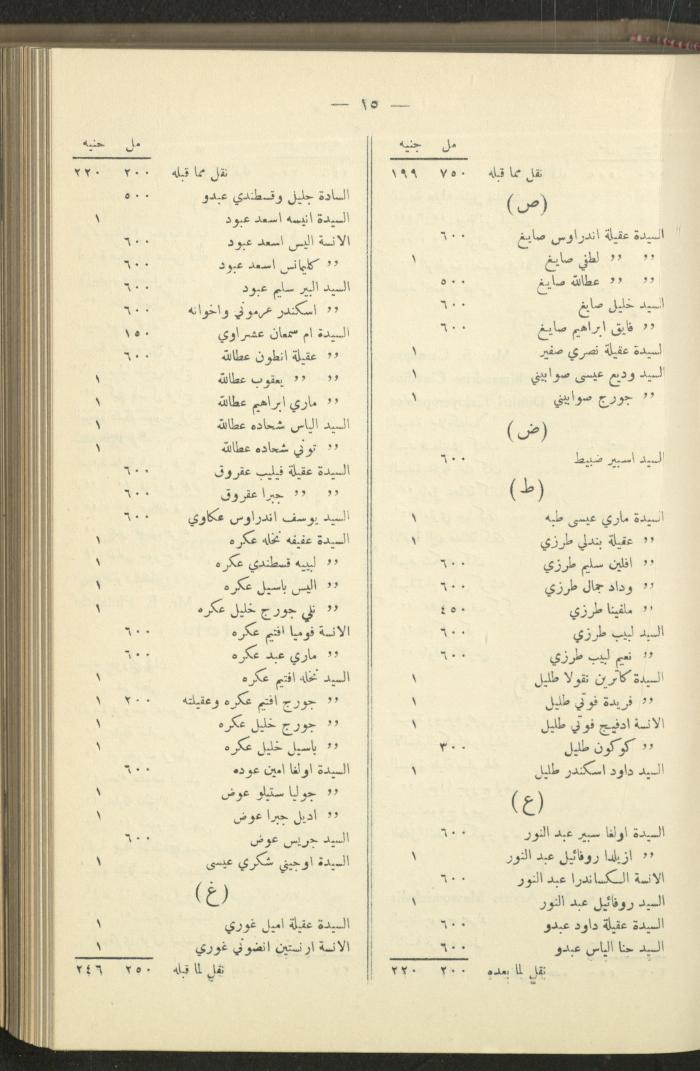 — ١٥ —
مل جنيه
نقل مما قبله ٧٥٠ ١٩٩
(ص)
السيدة عقيلة اندراوس صايغ ٦٠٠
,, ,, لطفي صايغ ١
,, ,, عطالله صايغ ٥٠٠
السيد خليل صايغ ٦٠٠
,, فايق ابراهيم صايغ ٦٠٠
لسيدة عقيلة نصري صفير ١
السيد وديع عيسى صوابيني ١
,, جورج صوابيني ١
(ض)
السيد اسبير ضبيط ٦٠٠
(ط)
السيدة ماري عيسى طبه ١
,, عقيلة بندلي طرزي ١
,, افلين سليم طرزي ٦٠٠
,, وداد جمال طرزي ٦٠٠
,, ملفينا طرزي ٤٥٠
السيد لبيب طرزي ٦٠٠
,, نعيم لبيب طرزي ٦٠٠
السيدة كاترين نقولا طليل ١
,, فريدة فوتي طليل ١
الانسة ادفيج فوتي طليل ١
,, كوكون طليل ٣٠٠
السيد داود اسكندر طليل ١
(ع)
السيدة اولغا سبير عبد النور ٦٠٠
,, ازيلدا روفائيل عبد النور ١
الانسة الكساندرا عبد النور ٦٠٠
السيد روفائيل عبد النور ١
السيدة عقيلة داود عبدو ٦٠٠
السيد حنا الياس عبدو ٦٠٠
نقل لما بعده ٢٠٠ ٢٢٠
مل جنيه
نقل مما قبله ٢٠٠ ٢٢٠
السادة جليل وقسطندي عبدو ٥٠٠
السيدة انيسه اسعد عبود ١
الانسة اليس اسعد عبود ٦٠٠
,, كليمانس اسعد عبود ٦٠٠
السيد البير سليم عبود ٦٠٠
,, اسكندر عرموني واخوانه ٦٠٠
السيدة ام سمعان عشراوي ١٥٠
,, عقيلة انطون عطالله ٦٠٠
,, ,, يعقوب عطالله ١
,, ماري ابراهيم عطالله ١
السيد الياس شحاده عطالله ١
,, توني شحاده عطالله ١
السيدة عقيلة فيليب عقروق ٦٠٠
,, ,, جبرا عقروق ٦٠٠
السيد يوسف اندراوس عكاوي ٦٠٠
السيدة عفيفه نخله عكره ١
,, لبيبه قسطندي عكره ١
,, اليس باسيل عكره ١
,, نلي جورج خليل عكره ١
الانسة فوميا افتيم عكره ٦٠٠
,, ماري عبد عكره ٦٠٠
السيد نخله افتيم عكره ١
,, جورج افتيم عكره وعقيلته ٢٠٠ ١
,, جورج خليل عكره ١
,, باسيل خليل عكره ١
السيدة اولغا امين عوده ٦٠٠
,, جوليا ستيلو عوض ١
,, اديل جبرا عوض ١
السيد جريس عوض ٦٠٠
السيدة اوجيني شكري عيسى ١
(غ)
السيدة عقيلة اميل غوري ١
الانسة ارنستين انضوني غوري ١
نقل لما قبله ٢٥٠ ٢٤٦